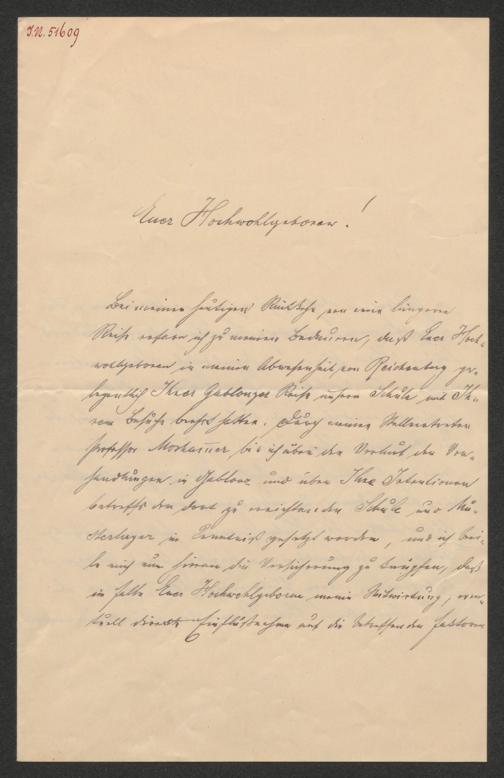 I.N. 51609
Euer Hochwohlgeboren!
Bei meiner heutigen Rückkehr von einer längeren
Reise erfahre ich zu meinem Bedauern, daß Euer Hoch-
wolgeboren in meiner Abwesenheit von Reichenberg ge-
legentlich Ihrer Gablonzer Reise unsere Schule mit Ih-
rem Besuche beehrt hatten. Durch meinen Stellvertreter
Professor bin ich über den Verlauf der Ver-
handlungen in Gablonz und über Ihre Intentionen
betreffs der dort zu errichtenden Schule und Mu-
sterlager in Kenntniß gesetzt worden, und ich bei-
le mich nun hieran die Versicherung zu knüpfen, daß
im Falle Euer Hochwohlgeboren meine Mitwirkung, even-
tuell direkte Einflußnahme auf die betreffenden Faktoren